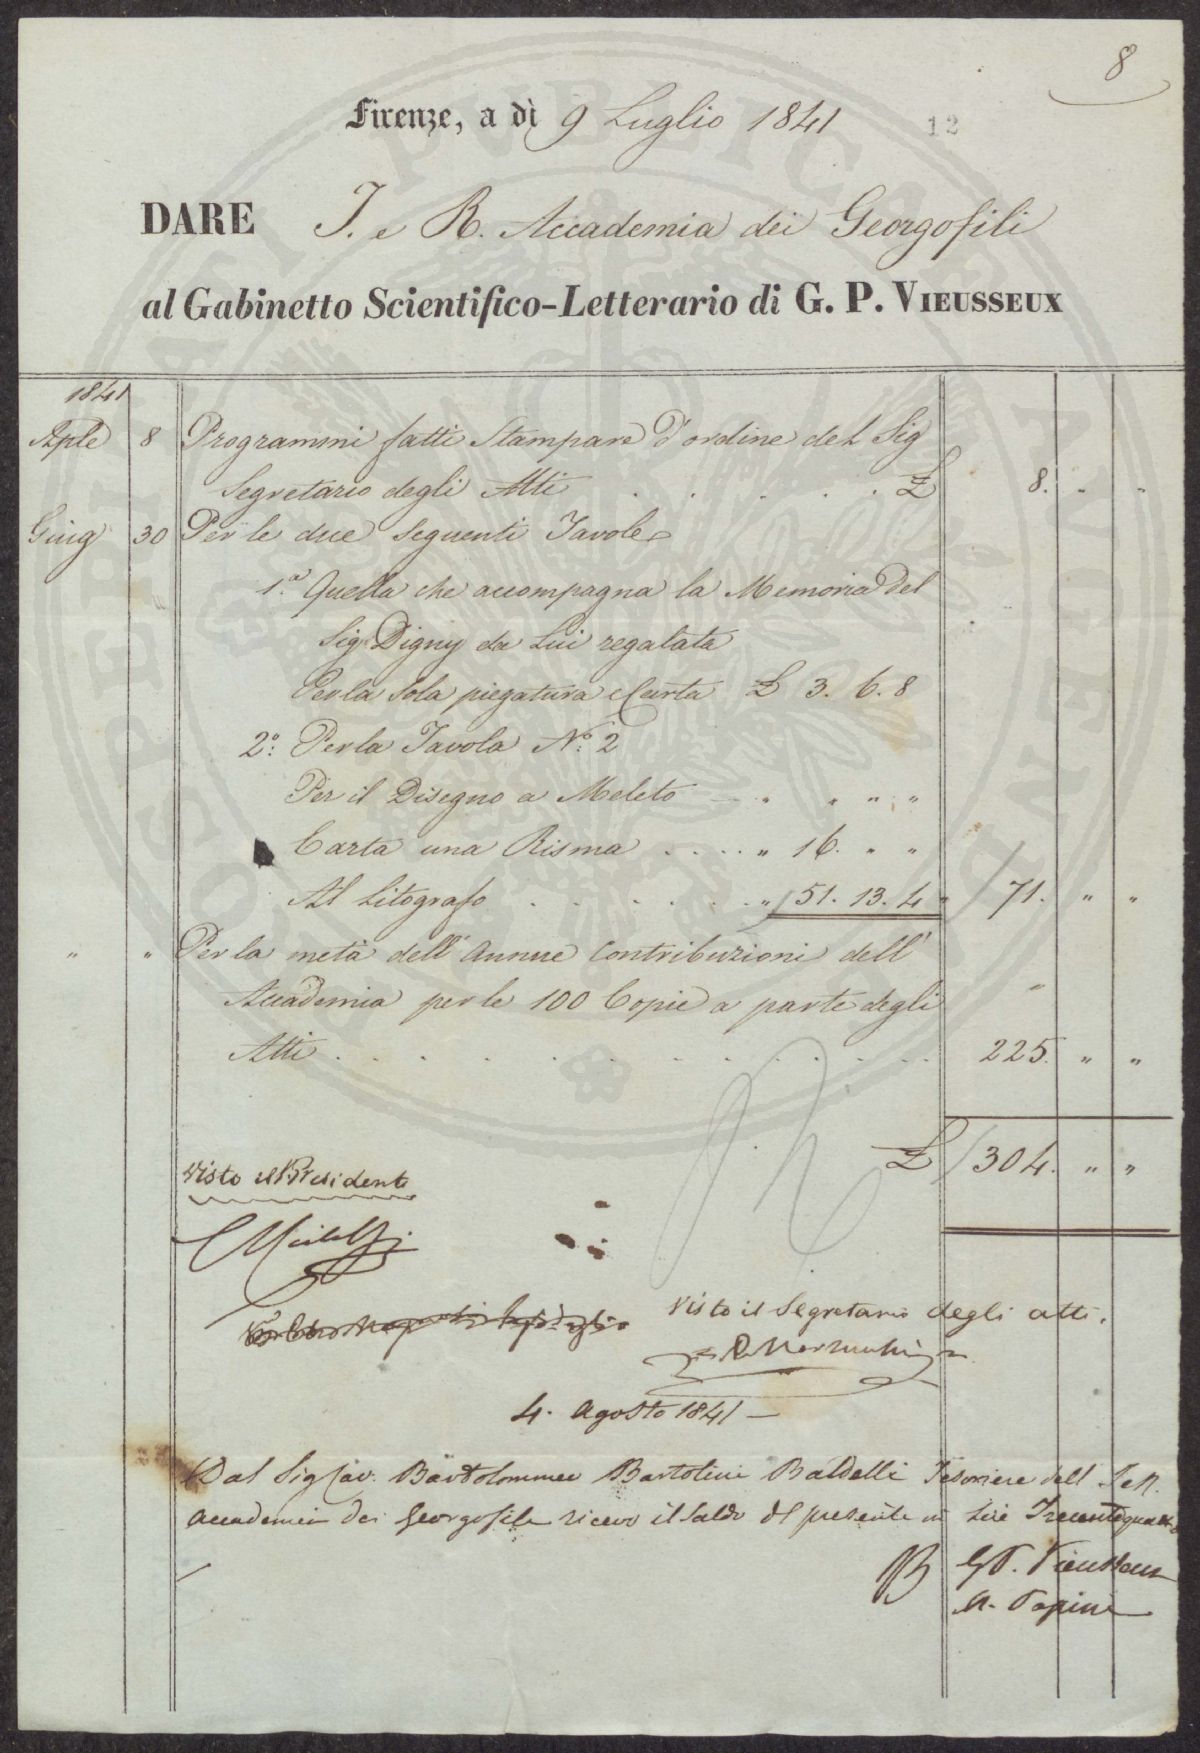 8
Firenze, a dì 9 Luglio 1841
12
DARE I. e R. Accademia dei Georgofili
al Gabinetto Scientifico-Letterario di G. P. VIEUSSEUX
1841
Aple 8 Programmi fatti Stampare d'ordine del Sig
Segretario degli Atti . . . . . . £ 8. " "
Giug 30 Per le due seguenti Tavole
1.a Quella che accompagna la Memoria del
Sig. Digny da Lui regalata
Per la sola piegatura e Carta £ 3. 6. 8
2.o Per la Tavola N.o 2
Per il Disegno a Meleto " " " "
Carta una Risma . . . . " 16. " "
Al Litografo . . . . . . " 51. 13. 4 " 71. " "
" " Per la metà dell' annue Contribuzioni dell'
Accademia per le 100 Copie a parte degli "
Atti . . . . . . . . . . 225. " "
£ 304. " "
Visto il Presidente
Visto il Segretario degli atti.
4. Agosto 1841 —
Dal Sig Cav. Bartolommeo Bartolini Baldelli Tesoriere dell' I e R.
Accademia dei Georgofili ricevo il saldo del presente in Lire Trecentoquattro
P G P. Vieusseux
A. Papini